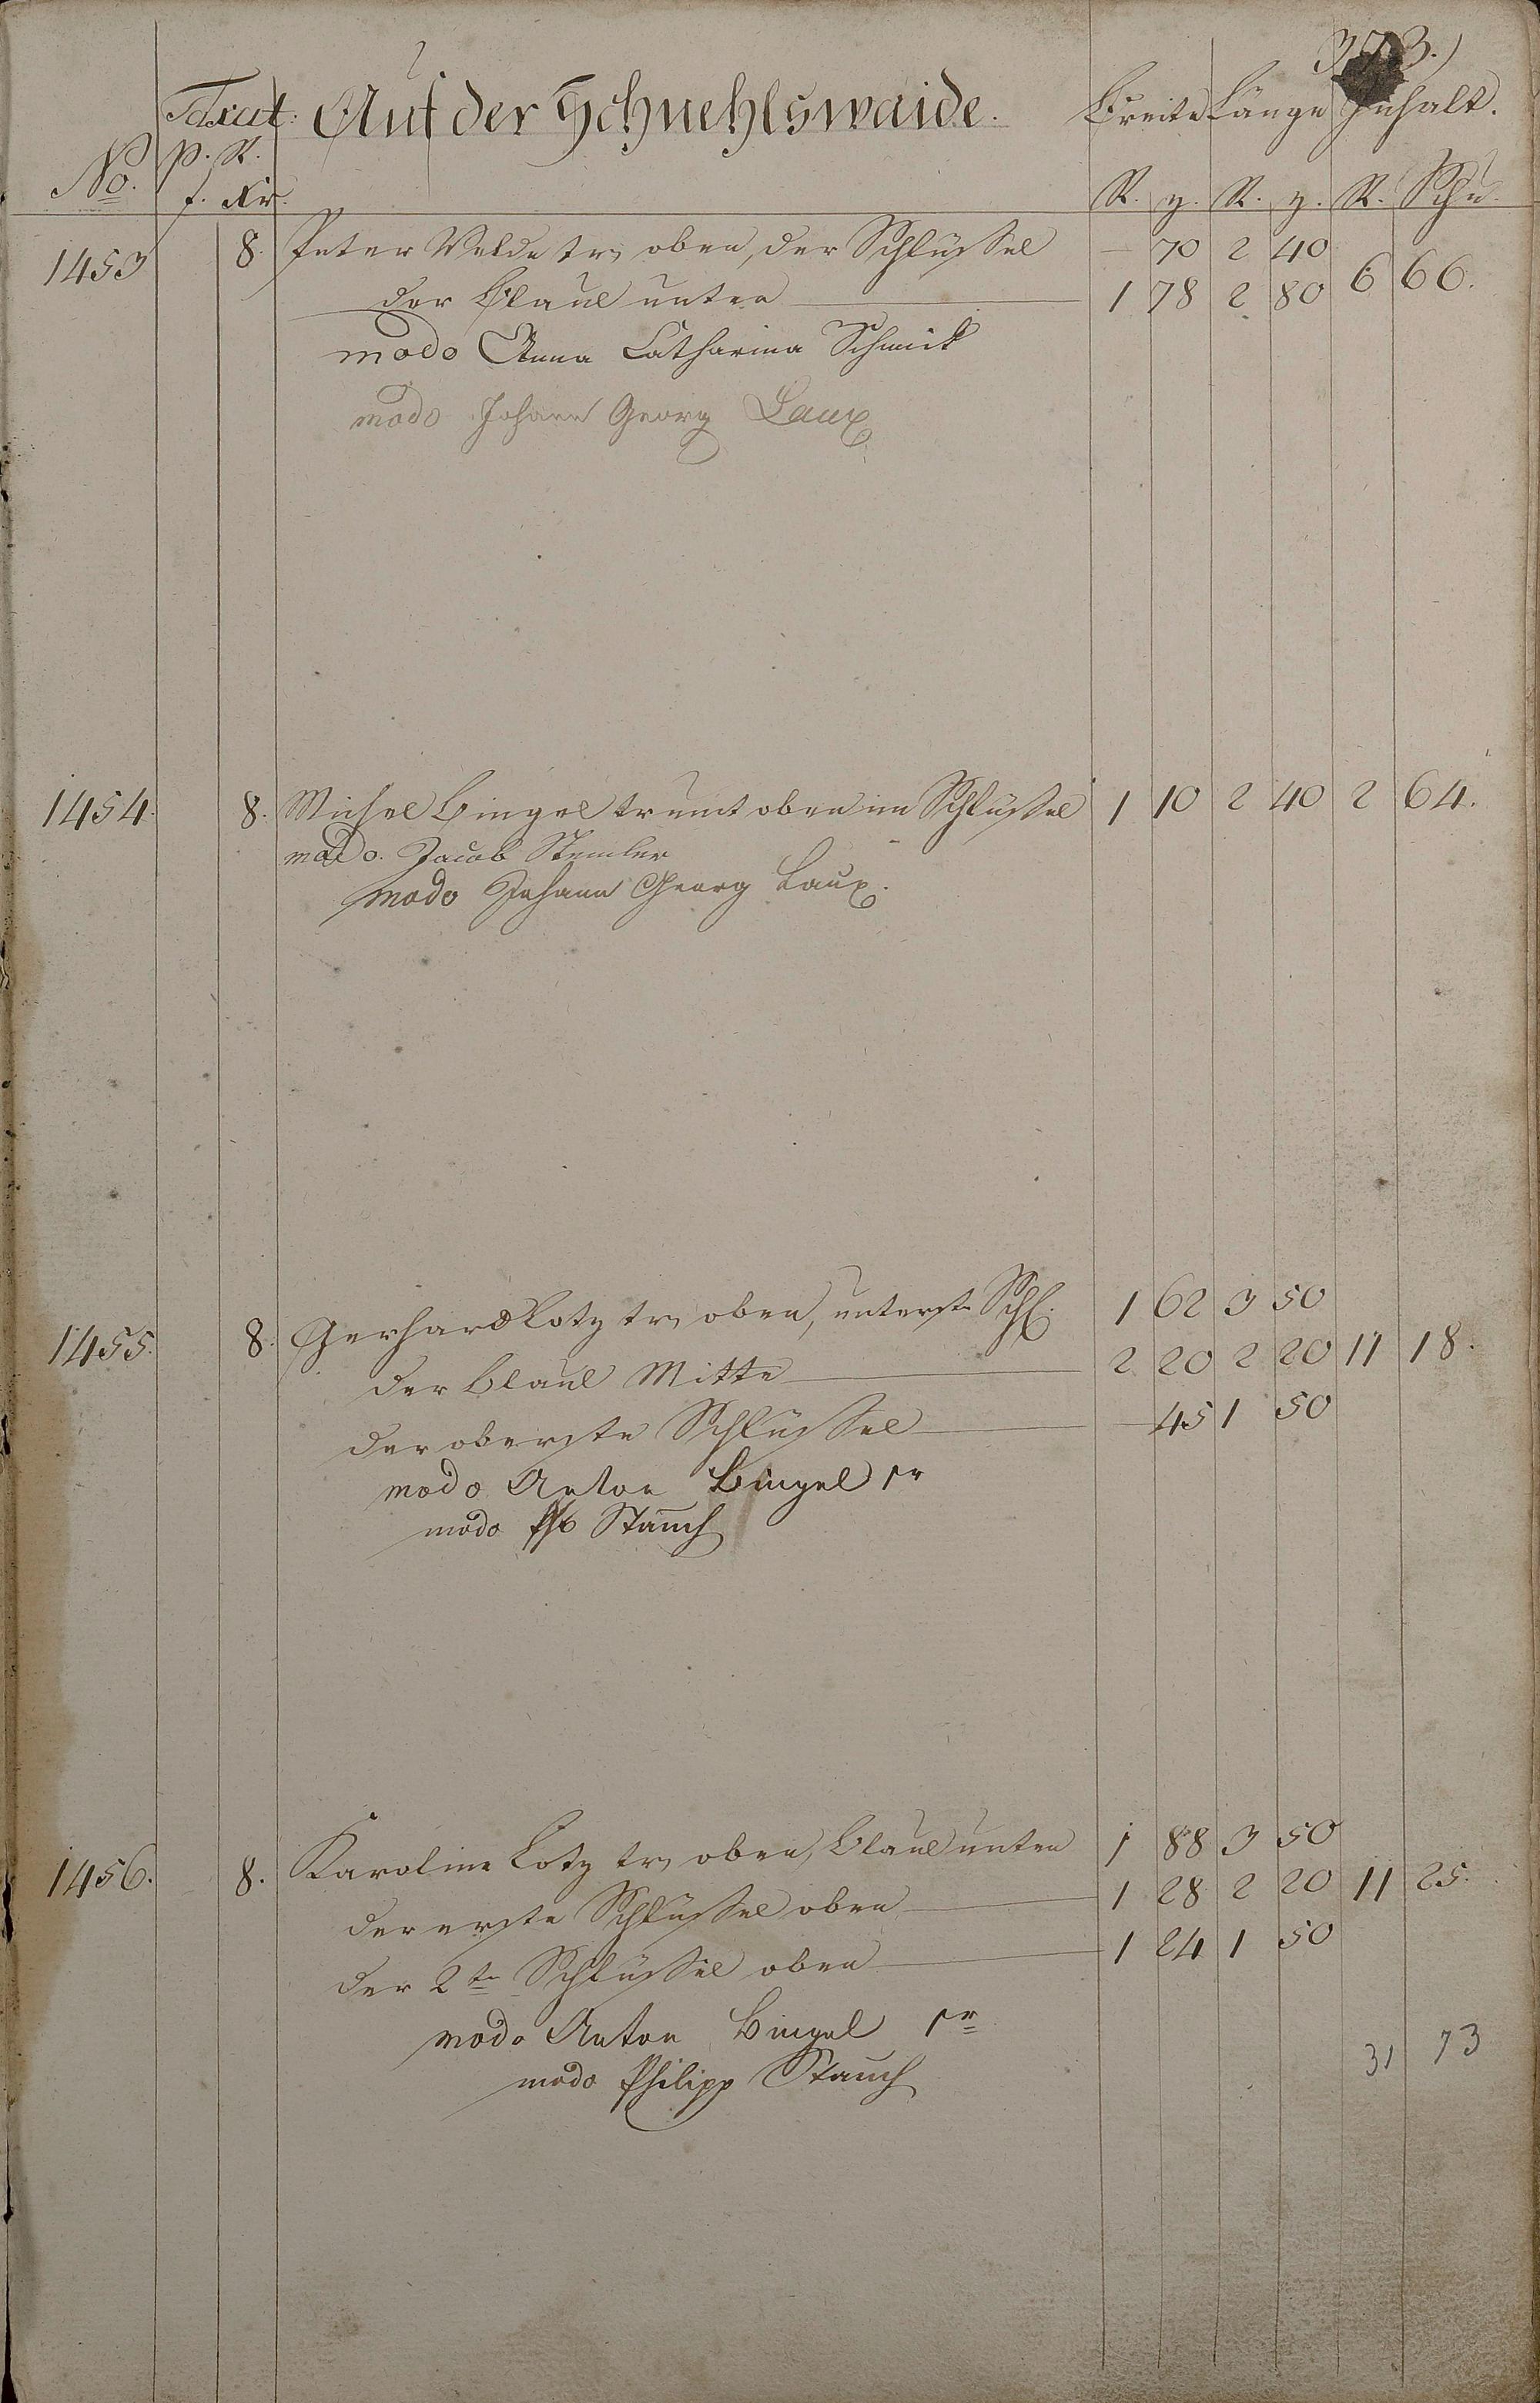 373.)
Taxat: Auf der Schuehlswaide. Breite Länge Inhalt.
No. p. R. f. Xr. R. z. R. z. R. Schu.
1453 8. Peter Velde tr, oben, der Schlüssel — 70 2 40
der Blaul unten 1 78 2 80 6 66.
modo Anna Catharina Schmick
modo Johann Georg Laux
1454. 8. Michel Bingel trumt oben im Schlüssel 1 10 2 40 2 64.
modo. Jacob Stemler
modo Johann Georg Laux.
1455. 8. Gerhard Lotz tr, oben, unterste Schl. 1 62 3 50
der Blaul Mitte 2 20 2 20 11 18.
der oberste Schlüssel — 45 1 50
modo Anton Bingel 1r
modo Stauch
1456. 8. Karoline Lotz tr, oben, Blaul unten 1 88 3 50
der erste Schlüssel oben 1 28 2 20 11 25.
der 2te Schlüssel oben 1 24 1 50
modo Anton Bingel 1r
modo Philipp Stauch
31 73